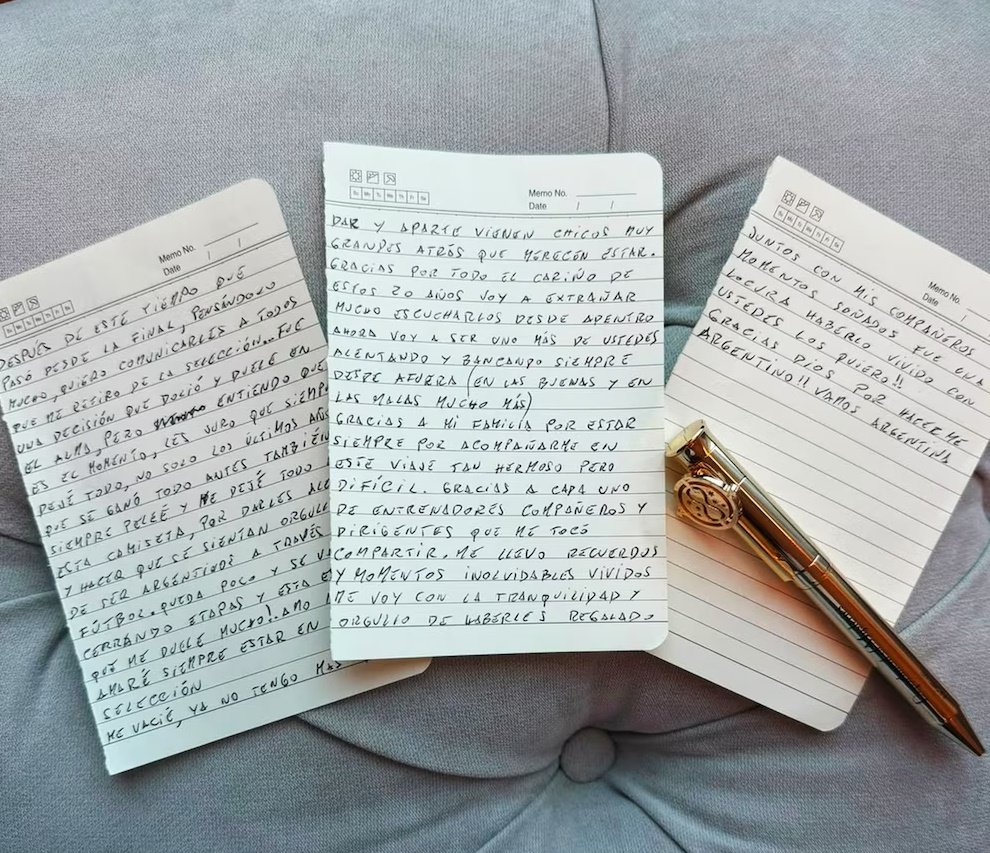 Memo No.
Date / /
DESPUÉS DE ESTE TIEMPO QUE
PASÓ DESDE LA FINAL, PENSÁNDOLO
MUCHO, QUIERO COMUNICARLES A TODOS
QUE ME RETIRO DE LA SELECCIÓN.. FUE
UNA DECISIÓN QUE DOLIÓ Y DUELE EN
EL ALMA, PERO ENTIENDO QUE
ES EL MOMENTO, LES JURO QUE SIEMP
DEJÉ TODO, NO SOLO LOS ÚLTIMOS AÑOS
QUE SE GANÓ TODO ANTES TAMBIÉN
SIEMPRE PELEÉ Y ME DEJÉ TODO
ESTA CAMISETA, POR DARLES ALE
Y HACER QUE SE SIENTAN ORGULL
DE SER ARGENTINOS A TRAVÉS
FÚTBOL. QUEDA POCO Y SE VA
CERRANDO ETAPAS Y ESTA E
QUE ME DUELE MUCHO!! AMO
AMARÉ SIEMPRE ESTAR EN
SELECCIÓN
ME VACIÉ, YA NO TENGO MAS
Su Mo Tu We Th Fr Sa
Memo No.
Date / /
DAR Y APARTE VIENEN CHICOS MUY
GRANDES ATRÁS QUE MERECEN ESTAR.
GRACIAS POR TODO EL CARIÑO DE
ESTOS 20 AÑOS VOY A EXTRAÑAR
MUCHO ESCUCHARLOS DESDE ADENTRO
AHORA VOY A SER UNO MÁS DE USTEDES
ALENTANDO Y BANCANDO SIEMPRE
DESDE AFUERA (EN LAS BUENAS Y EN
LAS MALAS MUCHO MÁS)
GRACIAS A MI FAMILIA POR ESTAR
SIEMPRE POR ACOMPAÑARME EN
ESTE VIAJE TAN HERMOSO PERO
DIFÍCIL. GRACIAS A CADA UNO
DE ENTRENADORES COMPAÑEROS Y
DIRIGENTES QUE ME TOCÓ
COMPARTIR. ME LLEVO RECUERDOS
Y MOMENTOS INOLVIDABLES VIVIDOS
ME VOY CON LA TRANQUILIDAD Y
ORGULLO DE HABERLES REGALADO
Memo No.
Date /
JUNTOS CON MIS COMPAÑEROS
MOMENTOS SOÑADOS FUE UNA
LOCURA HABERLO VIVIDO CON
USTEDES LOS QUIERO!!
GRACIAS DIOS POR HACERME
ARGENTINO!! VAMOS
ARGENTINA